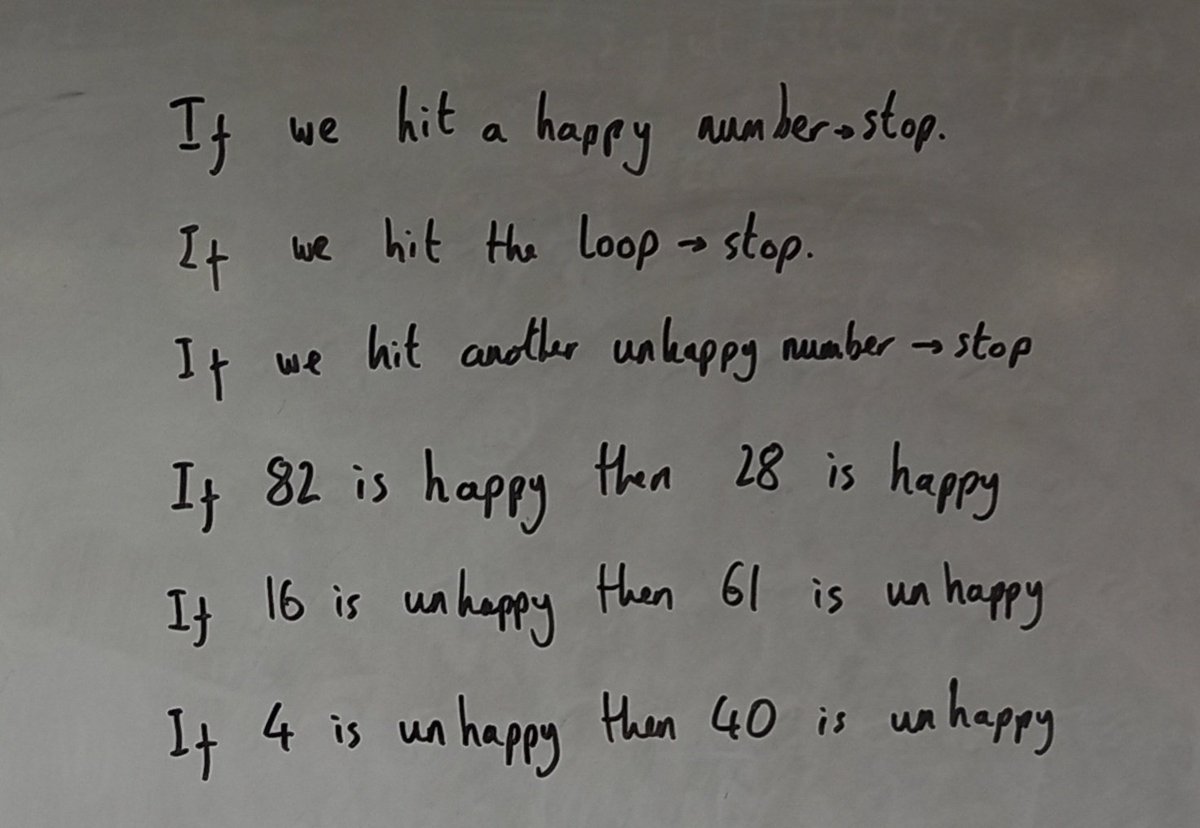 If we hit a happy number → stop.
If we hit the loop → stop.
If we hit another unhappy number → stop
If 82 is happy then 28 is happy
If 16 is unhappy then 61 is unhappy
If 4 is unhappy then 40 is unhappy